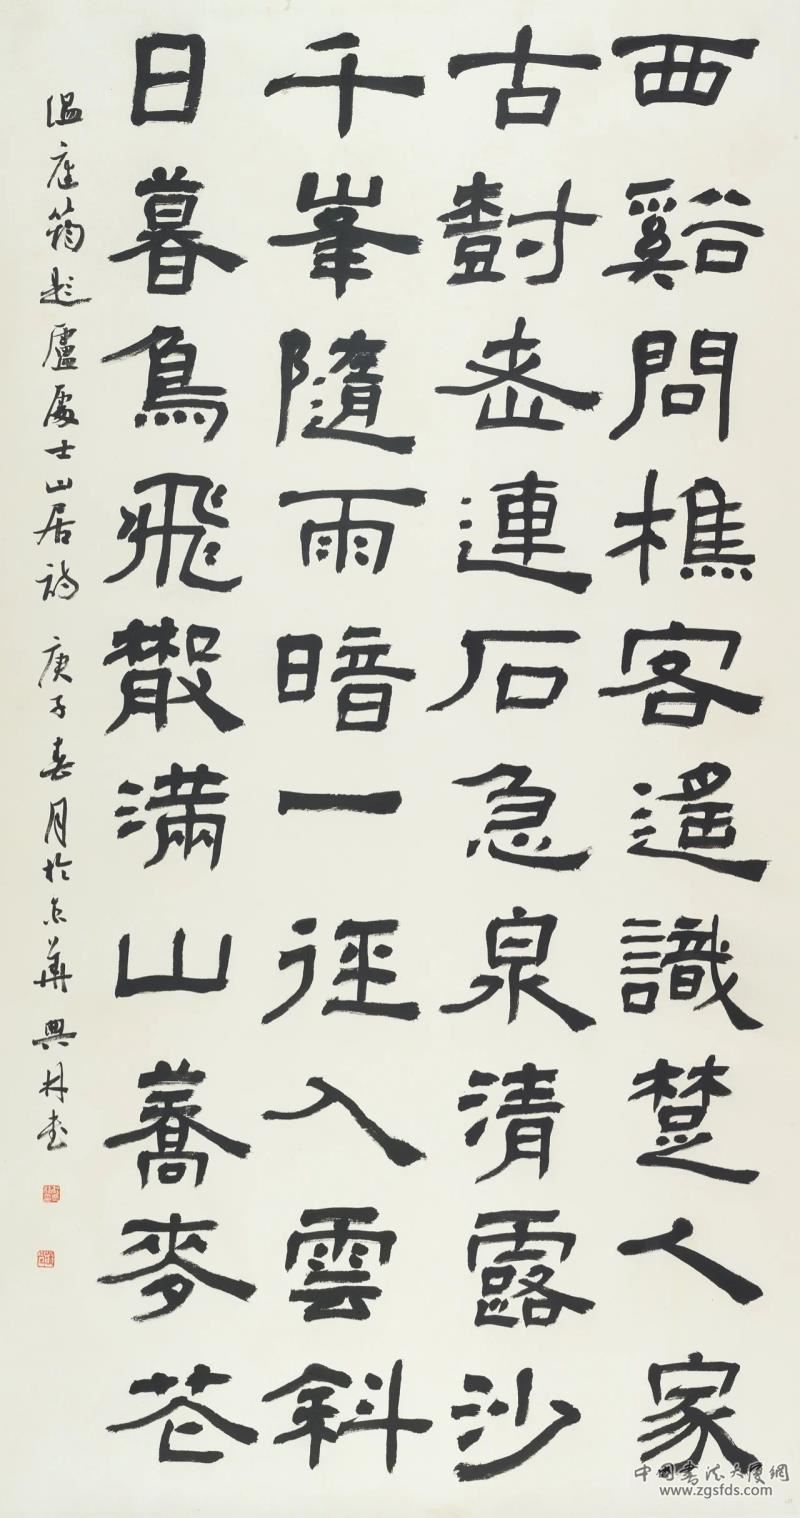 西谿問樵客遙識楚人家
古樹老連石急泉清露沙
千峯隨雨暗一徑入雲斜
日暮鳥飛散滿山蕎麥花
温庭筠題盧處士山居詩 庚子春月於京華 興林書
中國書法大廈網
www.zgsfds.com